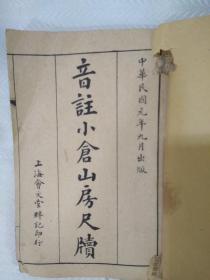 中華民國元年九月出版
音註小倉山房尺牘
上海會文堂粹記印行